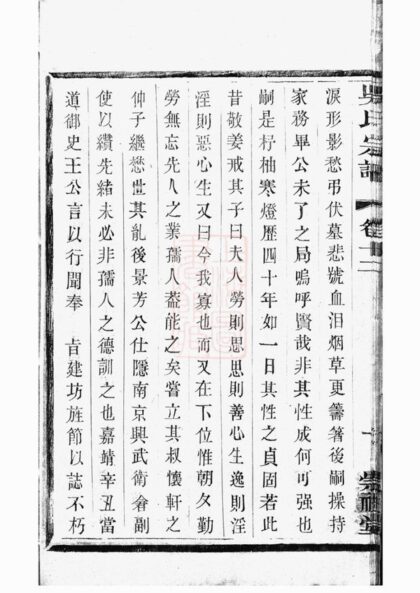 吳氏宗譜 卷十二 一
淚形影愁弔伏墓悲號血泪烟草更籌著後嗣操持
家務畢公未了之局嗚呼賢哉非其性成何可强也
嗣是杼柚寒燈歷四十年如一日其性之貞固若此
昔敬姜戒其子曰夫人勞則思思則善心生逸則淫
淫則惡心生又曰今我寡也而又在下位惟朝夕勤
勞無忘先人之業孺人葢能之矣嘗立其叔懷軒之
仲子繼懋世其胤後景芳公仕隱南京興武衛倉副
使以纘先緒未必非孺人之德訓之也嘉靖辛丑當
道御史王公言以行聞奉 旨建坊旌節以誌不朽